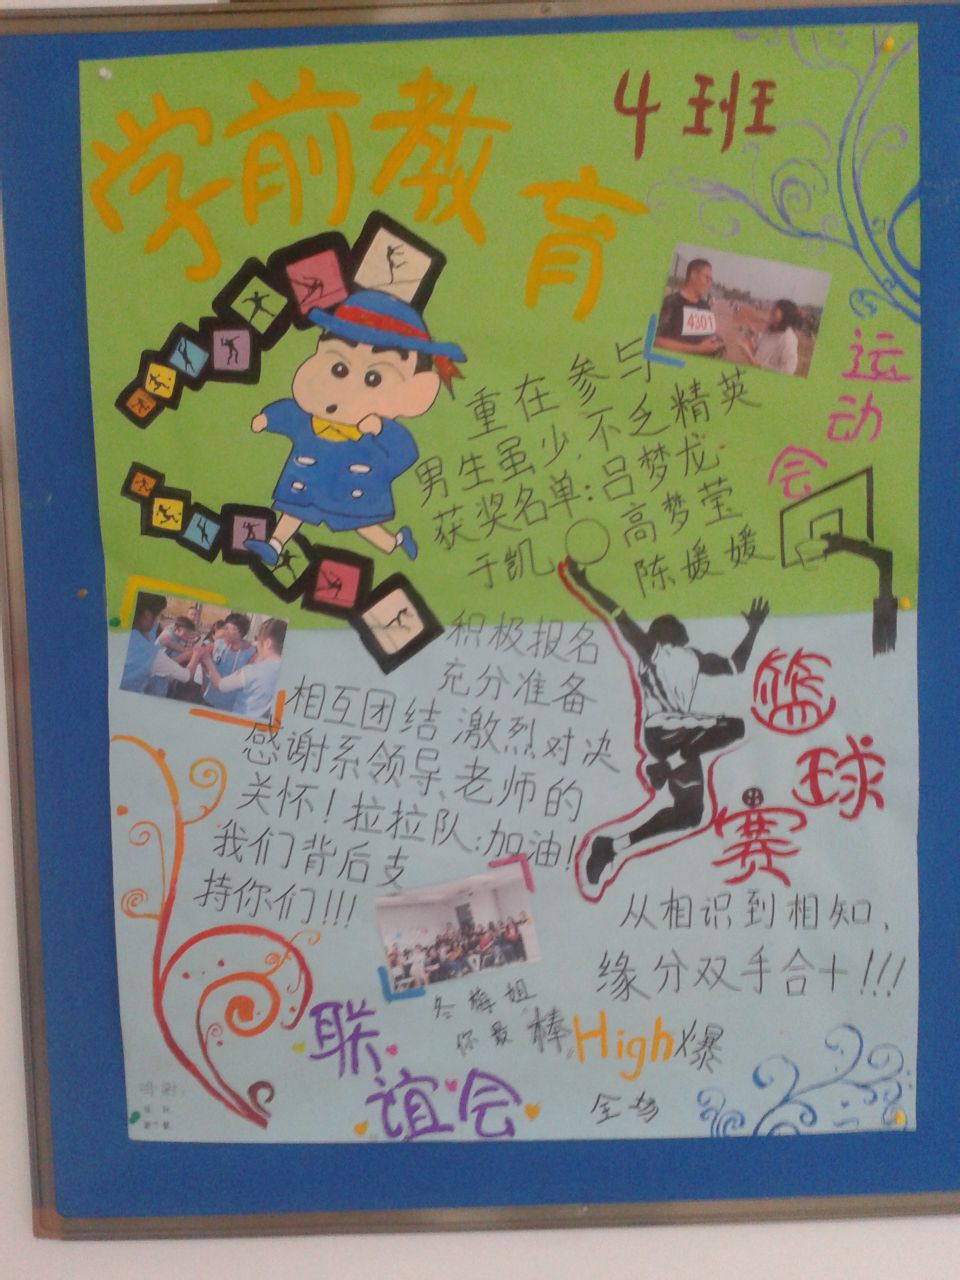 学前教育
4班
4301
运动会
重在参与
男生虽少,不乏精英
获奖名单:吕梦龙
于凯 高梦莹
陈媛媛
积极报名
充分准备
相互团结 激烈对决
感谢系领导、老师的
关怀!拉拉队:加油!
我们背后支
持你们!!!
篮球赛
从相识到相知,
缘分双手合十!!!
冬梅姐
你最棒
High爆
全场
联谊会
鸣谢: